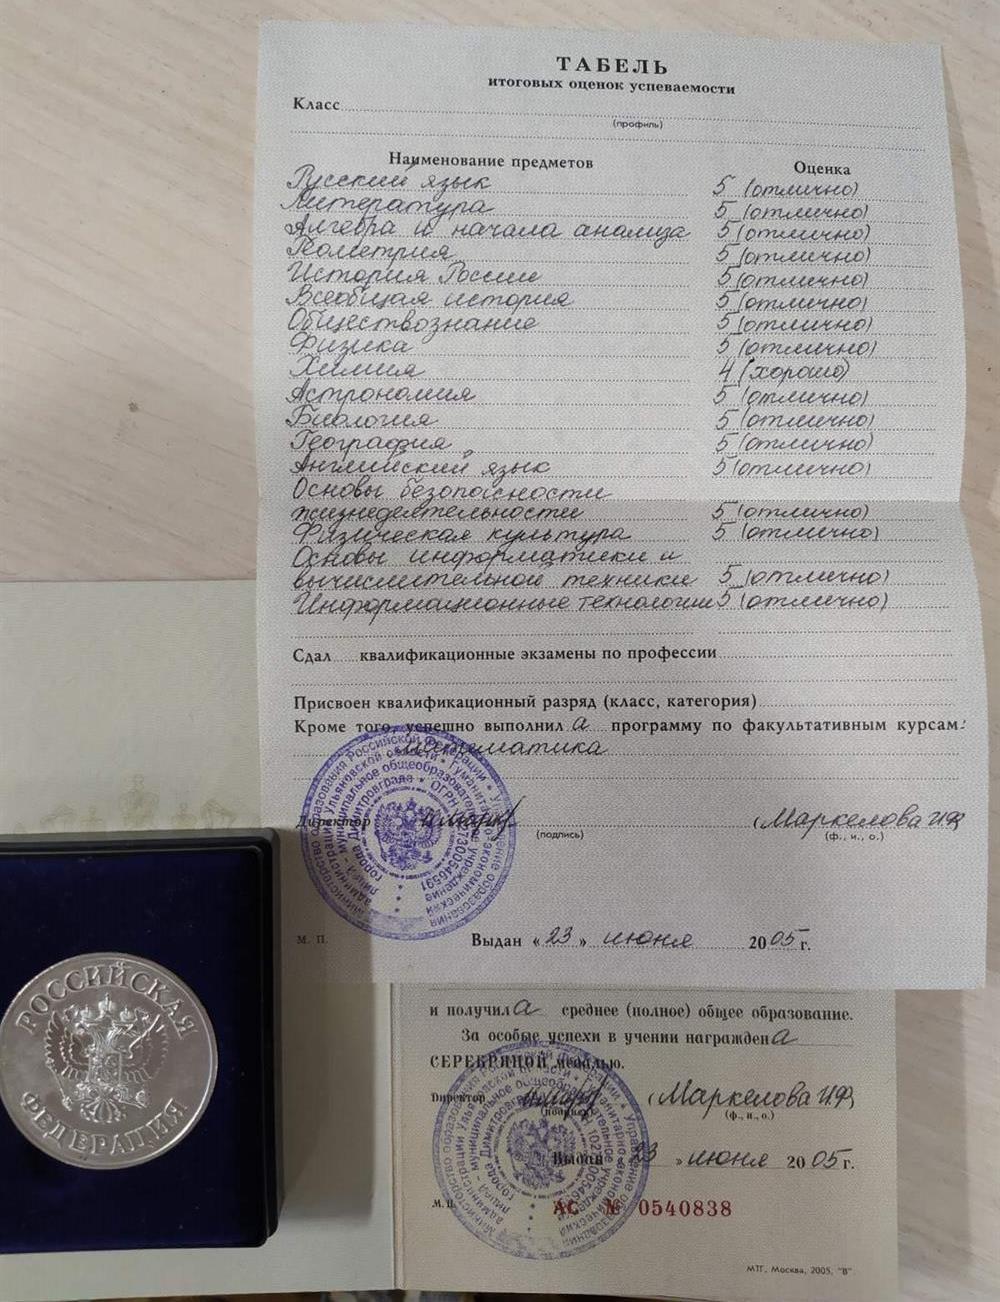 ТАБЕЛЬ
итоговых оценок успеваемости
Класс
(профиль)
Наименование предметов Оценка
Русский язык 5 (отлично)
Литература 5 (отлично)
Алгебра и начала анализа 5 (отлично)
Геометрия 5 (отлично)
История России 5 (отлично)
Всеобщая история 5 (отлично)
Обществознание 5 (отлично)
Физика 5 (отлично)
Химия 4 (хорошо)
Астрономия 5 (отлично)
Биология 5 (отлично)
География 5 (отлично)
Английский язык 5 (отлично)
Основы безопасности
жизнедеятельности 5 (отлично)
Физическая культура 5 (отлично)
Основы информатики и
вычислительной техники 5 (отлично)
Информационные технологии 5 (отлично)
Сдал квалификационные экзамены по профессии
Присвоен квалификационный разряд (класс, категория)
Кроме того, успешно выполнила программу по факультативным курсам:
математика
Директор (Маркелова И.Ф.)
(подпись) (ф., и., о.)
М. П. Выдан «23» июня 2005 г.
и получила среднее (полное) общее образование.
За особые успехи в учении награждена
СЕРЕБРЯНОЙ медалью.
Директор (Маркелова И.Ф.)
(подпись) (ф., и., о.)
Выдан «23» июня 2005 г.
М.П. АС № 0540838
МТГ, Москва, 2005, "В"
РОССИЙСКАЯ
ФЕДЕРАЦИЯ